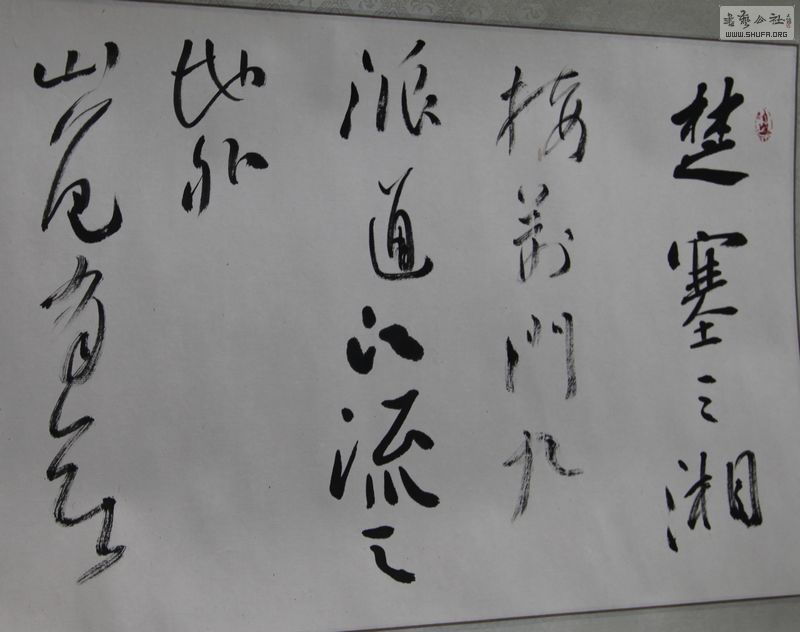 楚塞三湘
接荊門九
派通江流天
地外
山色有無
書藝公社
WWW.SHUFA.ORG